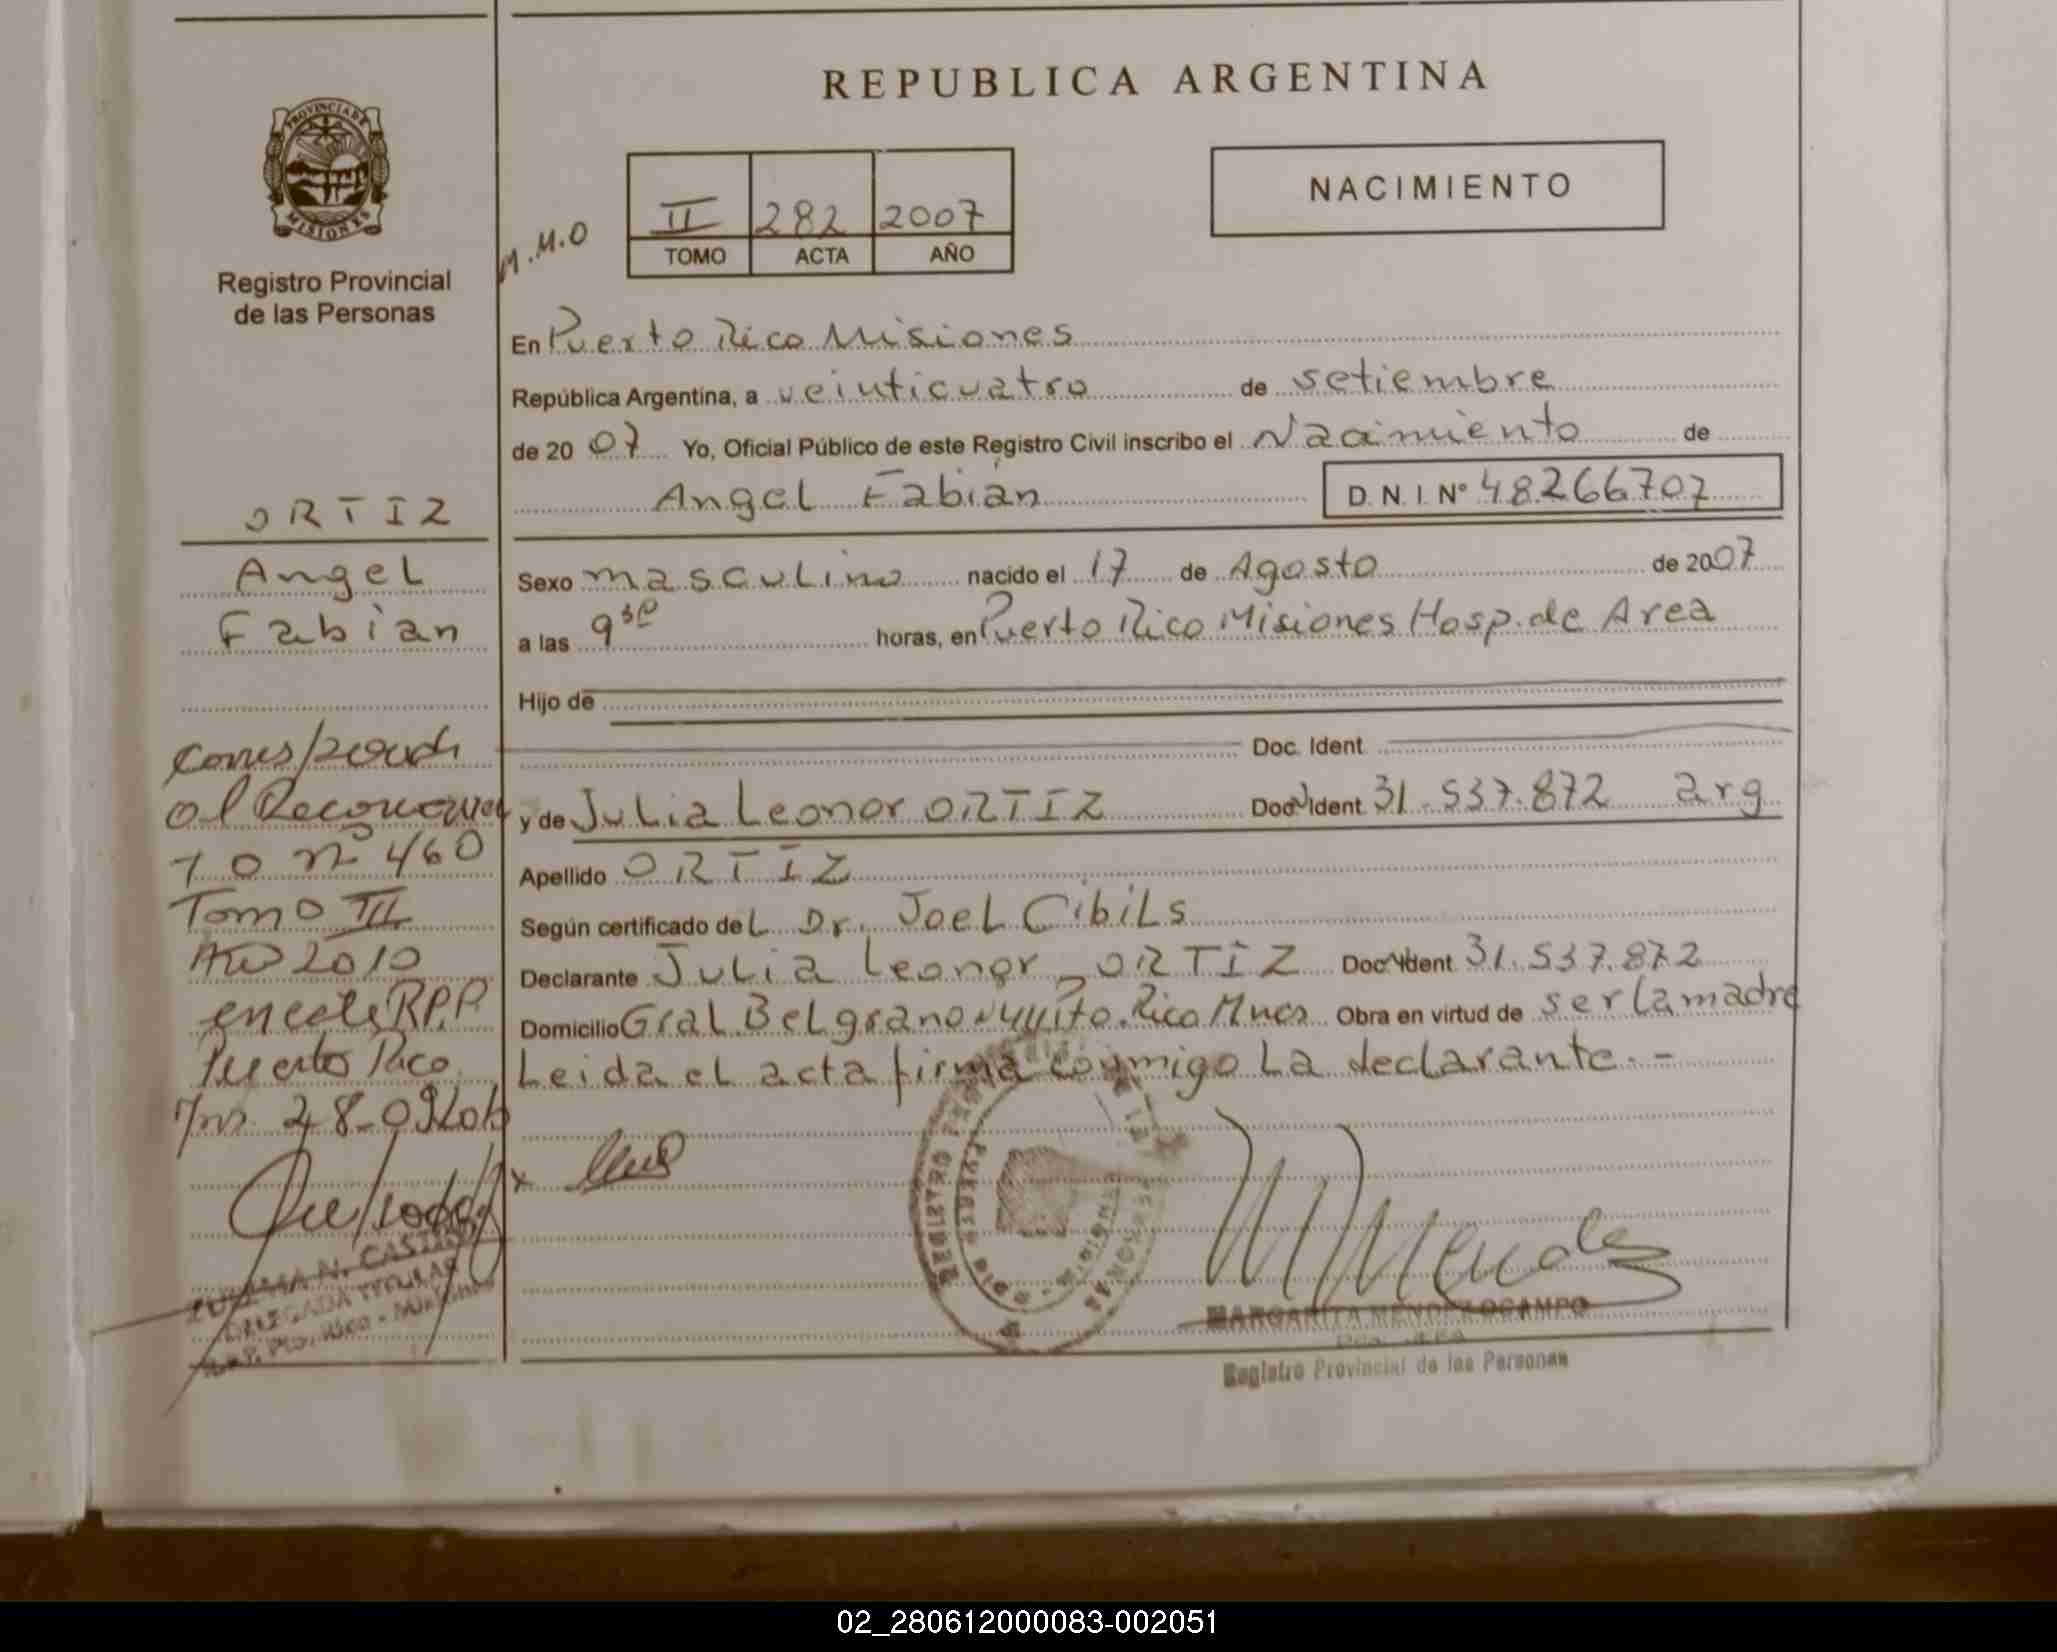 REPUBLICA ARGENTINA
PROVINCIA DE
MISIONES
Registro Provincial
de las Personas
M.M.O
II 282 2007
TOMO ACTA AÑO
NACIMIENTO
En Puerto Rico Misiones
República Argentina, a veinticuatro de setiembre
de 20 07 Yo, Oficial Público de este Registro Civil inscribo el Nacimiento de
Angel Fabián D.N.I. Nº 48266707
Sexo masculino nacido el 17 de Agosto de 2007
a las 9 30 horas, en Puerto Rico Misiones Hosp. de Area
Hijo de
Doc. Ident
y de Julia Leonor ORTIZ Doc. Ident 31.537.872 arg
Apellido ORTIZ
Según certificado del Dr. Joel Cibils
Declarante Julia Leonor ORTIZ Doc. Ident 31.537.872
Domicilio Gral Belgrano Pto. Rico Mnes Obra en virtud de ser la madre
Leida el acta firma conmigo la declarante.-
x
MARGARITA MENDEZ OCAMPO
Registro Provincial de las Personas
ORTIZ
Angel
Fabian
Corresponde
al Reconocimien
to nº 460
Tomo III
Año 2010
en este R.P.P
Puerto Rico
N. CASTRO
DELEGADA TITULAR
R.P.P. Pto. Rico - Misiones
02_280612000083-002051